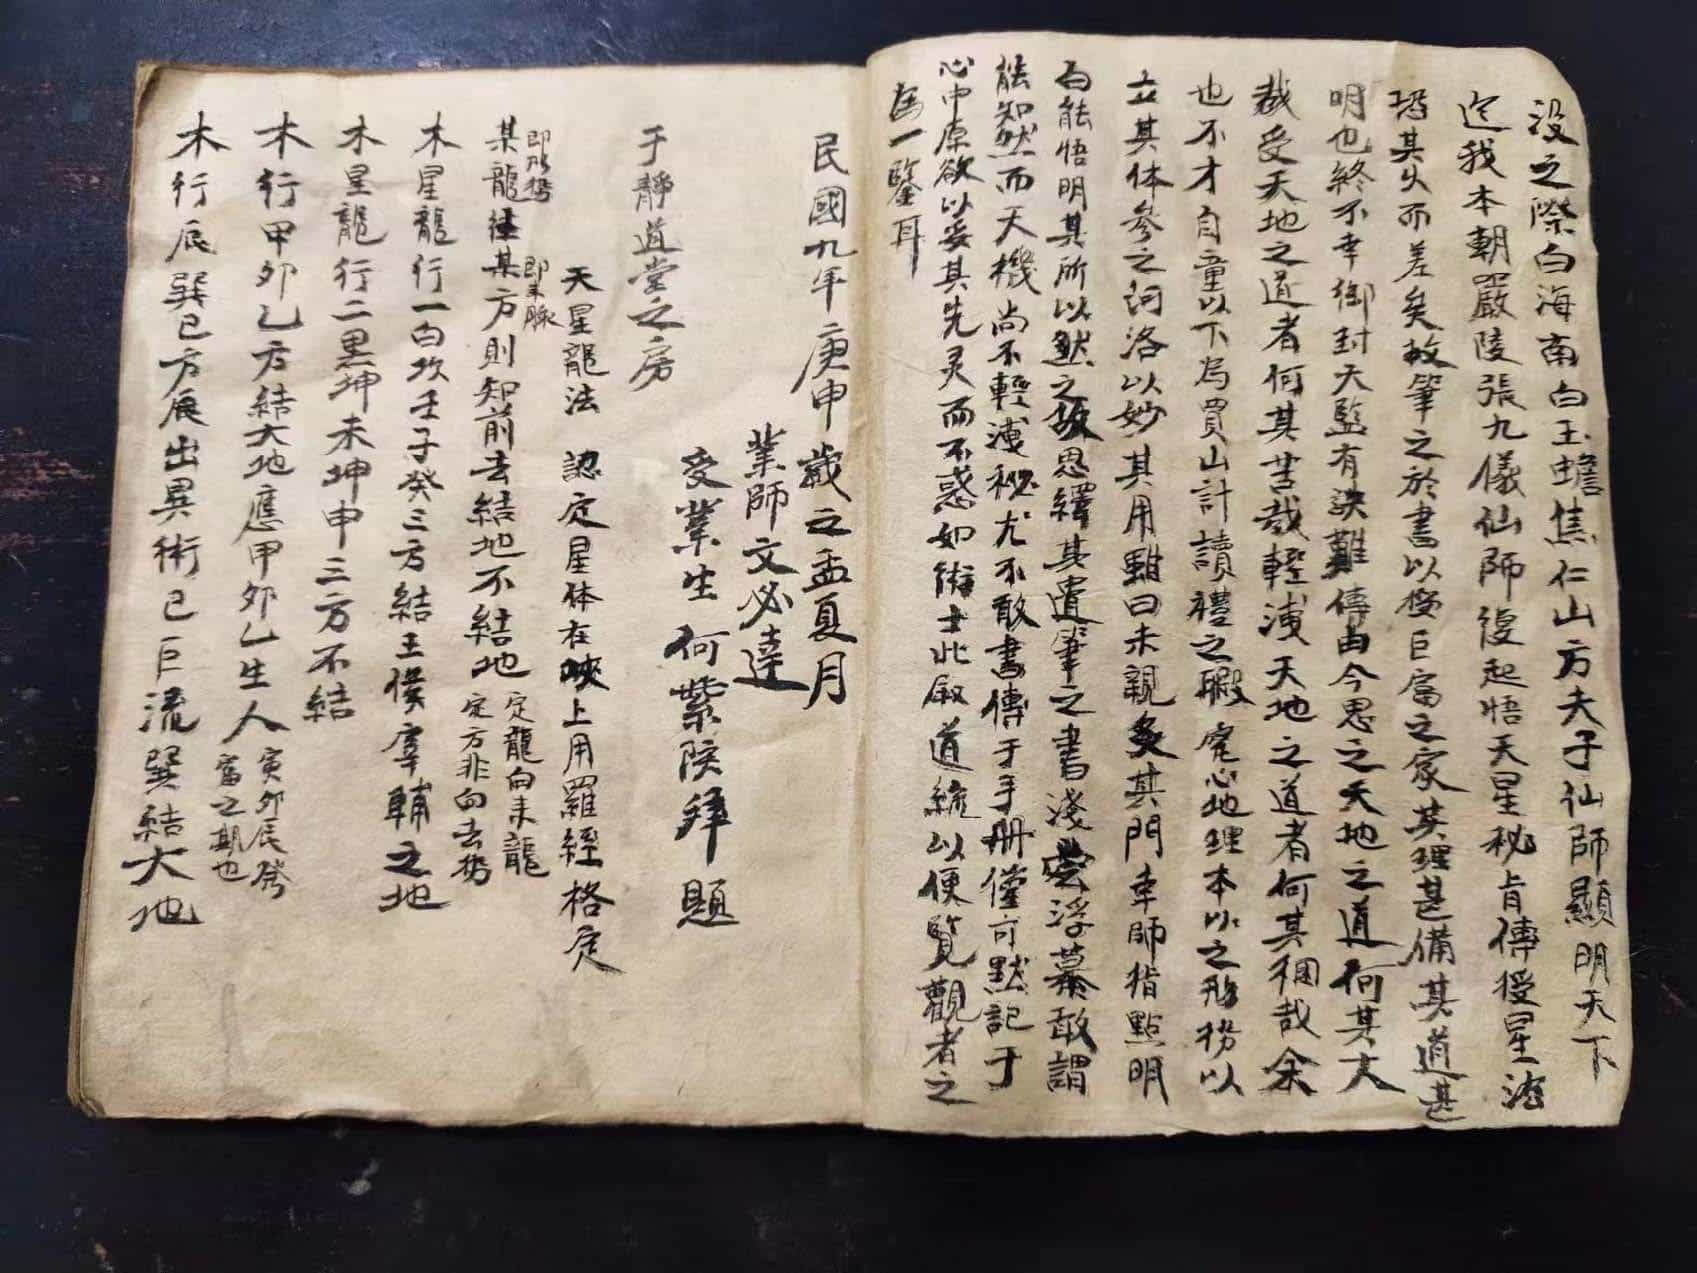 没之際白海南白玉蟾焦仁山方夫子仙師顯明天下
迄我本朝嚴陵張九儀仙師復起悟天星秘肯傳授星法
得其火而差矣故筆之於書以俊巨富之家其理甚備其道甚
明也終不幸御封天監有訣難傳由今思之天地之道何其大
哉受天地之道者何其苦哉輕洩天地之道者何其稠哉余
也不才自童以下為買山計讀禮之暇究心地理本以之形势以
立其体參之河洛以妙其用黜曰未親炙其門幸師指點明
白能悟明其所以然之故思繹其遺筆之書淺嘗浮慕敢謂
能知然而天機尚不輕洩秘尤不敢書傳于手册僅可默記于
心中原欲以妥其先灵而不惑如術士此叙道統以便覽觀者之
為一鑒耳
民國九年庚申歲之孟夏月
業師文必達
受業生何紫院拜題
于靜道堂之房
天星龍法 認定星体在峽上用羅經格定
某龍往某方則知前去結地不結地 定龍向来龍 定方非向去势
即形势 即来脉
木星龍行一白坎壬子癸三方結王侯宰輔之地
木星龍行二黑坤未坤申三方不結
木行甲卯乙方結大地應甲卯乙生人 寅卯辰發 富之期也
木行辰巽巳方辰出異術巳巨流巽結大地